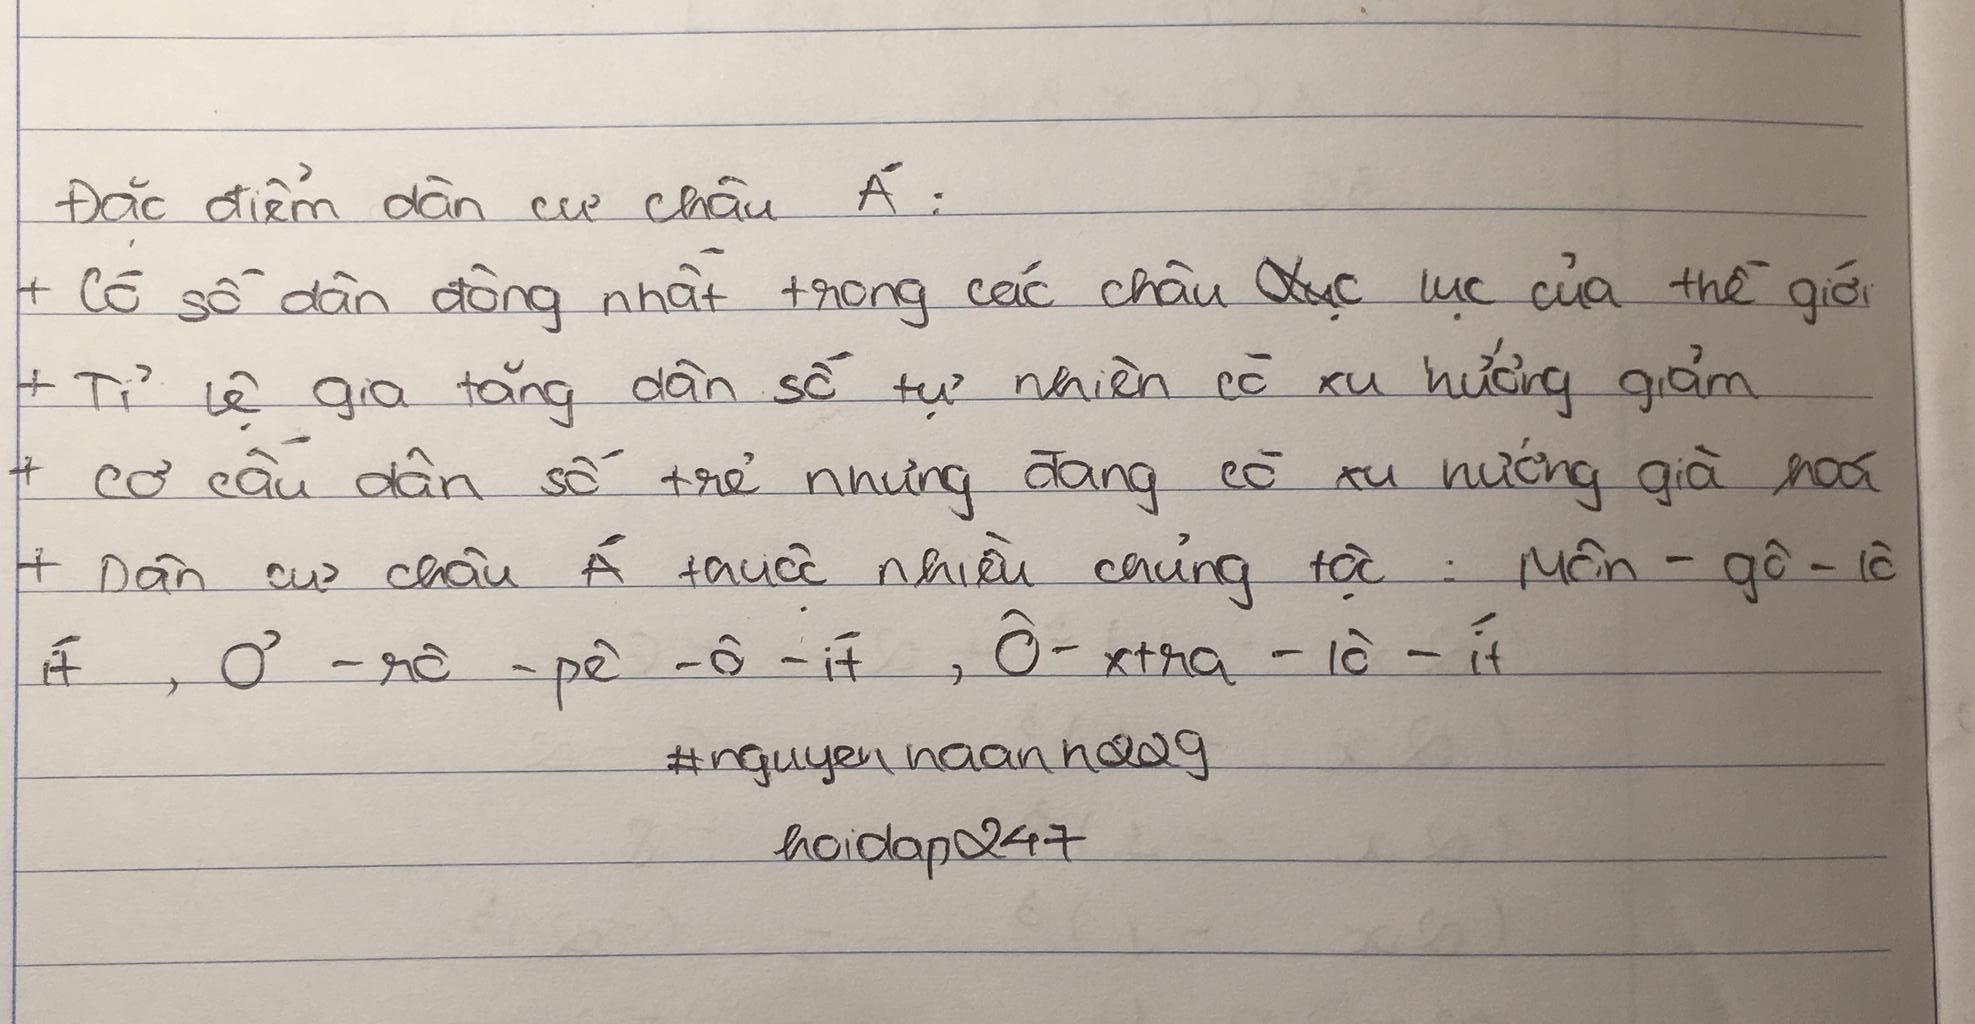 Đặc điểm dân cư châu Á :
+ Có số dân đông nhất trong các châu lục của thế giới
+ Tỉ lệ gia tăng dân số tự nhiên có xu hướng giảm
+ Cơ cấu dân số trẻ nhưng đang có xu hướng già hoá
+ Dân cư châu Á thuộc nhiều chủng tộc : Môn - gô - lô
ít , Ơ - rô - pê - ô - ít , Ô - xtra - lô - ít
#nguyenhaanh2229
hoidap247